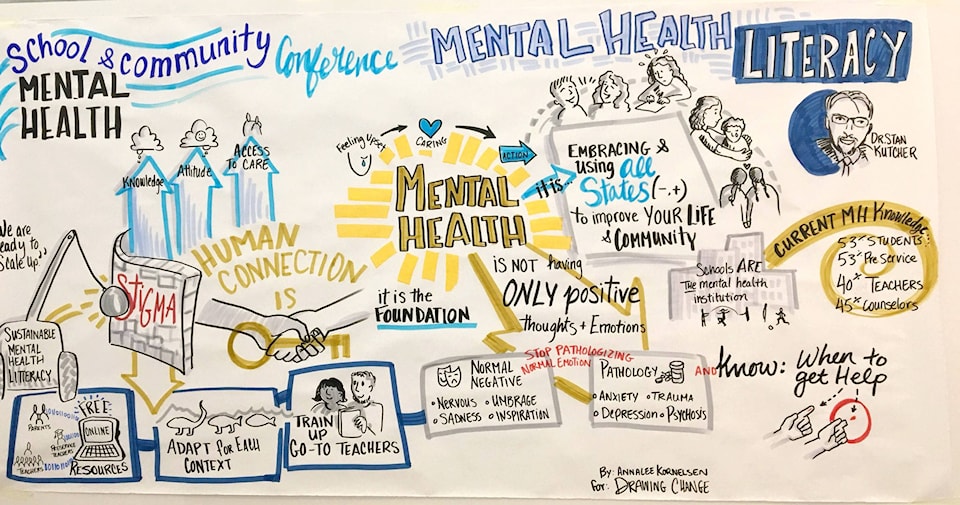 School & Community
Conference
MENTAL
HEALTH
MENTAL HEALTH
LITERACY
DR. STAN
KUTCHER
Knowledge
Attitude
ACCESS
TO CARE
Feeling Upset
CARING
ACTION
MENTAL
HEALTH
it is...
EMBRACING &
using all
States (-,+)
to improve YOUR LIFE
& COMMUNITY
We are
ready to
"Scale up"
STIGMA
HUMAN
CONNECTION
IS
it is the
FOUNDATION
IS NOT having
ONLY positive
thoughts + Emotions
Schools ARE
The mental health
institution
CURRENT MH Knowledge:
53% STUDENTS
53% PreService
40% TEACHERS
45% Counselors
SUSTAINABLE
MENTAL
HEALTH
LITTERACY
FREE
ONLINE
RESOURCES
PARENTS
PRESERVICE
TEACHERS
TEACHERS
ADAPT for EACH
CONTEXT
TRAIN
UP
GO-TO TEACHERS
NORMAL
NEGATIVE
• NERVOUS • UMBRAGE
• SADNESS • INSPIRATION
STOP PATHOLOGIZING
NORMAL EMOTION
PATHOLOGY
• ANXIETY • TRAUMA
• DEPRESSION • PSYCHOSIS
AND Know: When to
get Help
By: ANNALEE KORNELSEN
for: DRAWING CHANGE